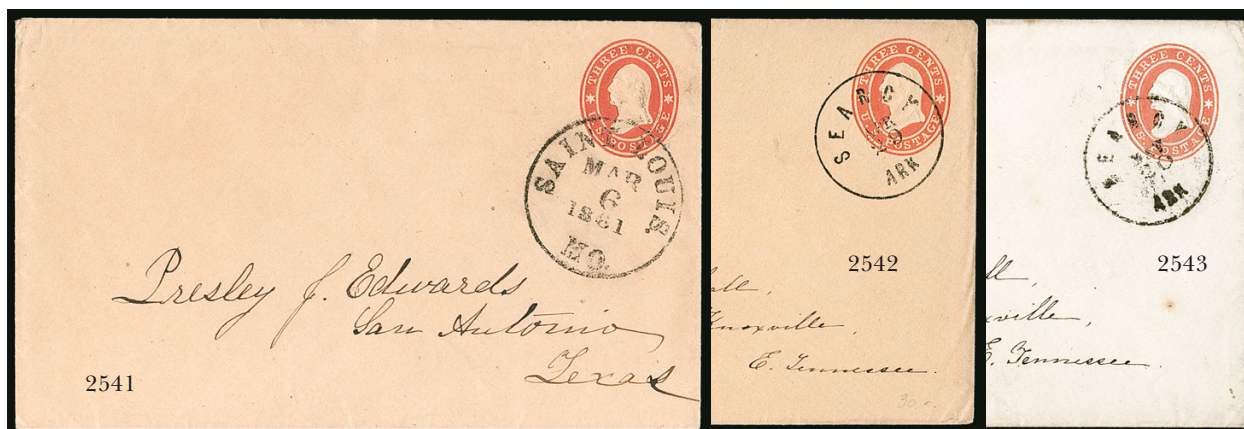 THREE CENTS
U.S. POSTAGE
SAINT LOUIS.
MAR
6
1861
MO.
Presley J. Edwards
San Antonio
Texas
2541
THREE CENTS
U.S. POSTAGE
SEARCY
ARK
2542
Knoxville,
E. Tennessee.
THREE CENTS
U.S. POSTAGE
SEARCY
ARK
2543
ville,
E. Tennessee.